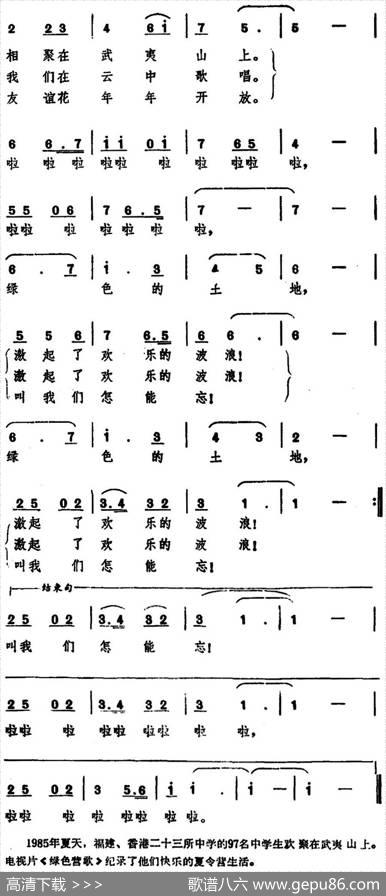 2 23 | 4 6i | 7 5. | 5 — |
相 聚在 武 夷 山 上。
我 们在 云 中 歌 唱。
友 谊花 年 年 开 放。
6 6.7 | ii 0i | 7 65 | 4 — |
啦 啦 啦 啦啦 啦 啦 啦啦 啦,
55 06 | 7 6.5 | 7 — | 7 — |
啦啦 啦 啦 啦 啦 啦,
6 . 7 | i . 3 | 4 5 | 6 — |
绿 色 的 土 地,
5 5 6 | 7 6.5 | 6 6 . | 6 — |
激 起 了 欢 乐的 波 浪!
激 起 了 欢 乐的 波 浪!
叫 我 们 怎 能 忘!
6 . 7 | i . 3 | 4 3 | 2 — |
绿 色 的 土 地,
25 02 | 3.4 32 | 3 1 . | 1 — :‖
激起 了 欢 乐的 波 浪!
激起 了 欢 乐的 波 浪!
叫我 们 怎 能 忘!
结束句
25 02 | 3.4 32 | 3 1 . | 1 — |
叫我 们 怎 能 忘!
25 02 | 3.4 32 | 3 1 . | 1 — |
啦啦 啦 啦啦 啦啦 啦 啦,
25 02 | 3 5.6 | i i . | i — | i — ‖
啦啦 啦 啦 啦啦 啦 啦。
1985年夏天,福建、香港二十三所中学的97名中学生欢聚在武夷山上。
电视片《绿色营歌》纪录了他们快乐的夏令营生活。
高清下载 >>> 歌谱八六 www.gepu86.com